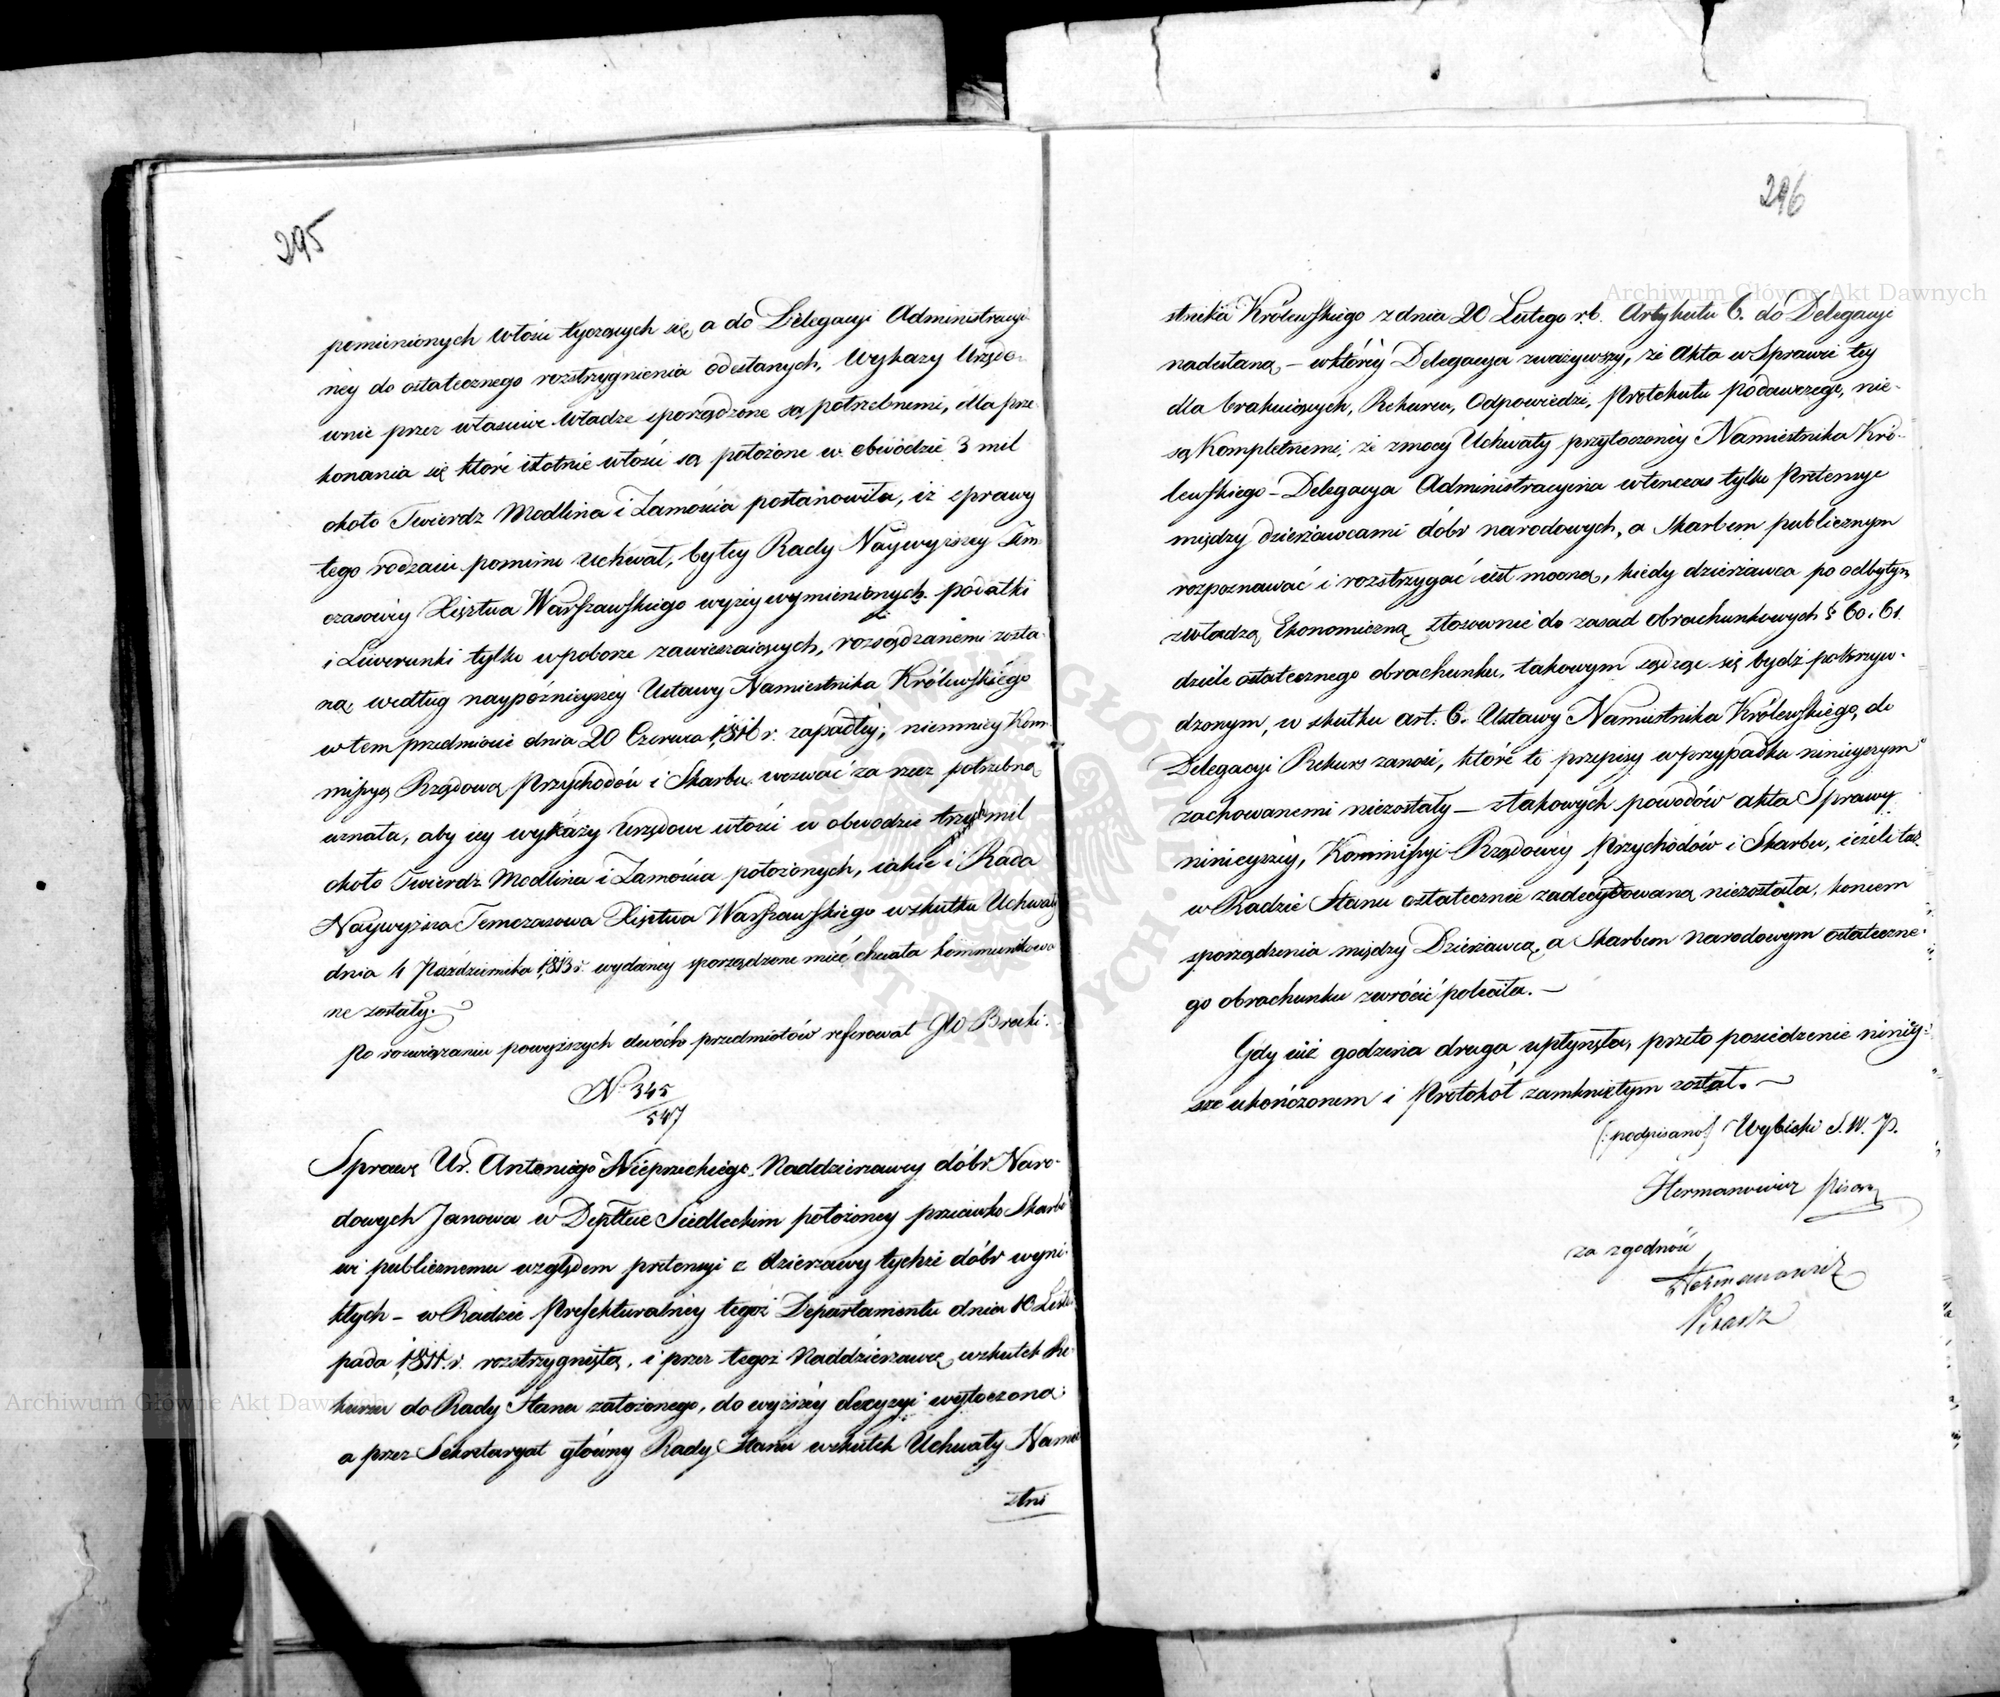 295
pomienionych włości tyczących się, a do Delegacyi Administracyi-
ney do ostatecznego rozstrzygnienia odesłanych, Wykazy Urzędo-
wnie przez właściwe Władze sporządzone są potrzebnemi, dla prze-
konania się które istotnie włości są położone w obwodzie 3 mil
około Twierdz Modlina i Zamościa postanowiła, iż sprawy
tego rodzaiu pomimo Uchwał, byłey Rady Naywyższey Tem-
czasowéy Xięztwa Warszawskiego wyżey wymienionych podatki
i Liwerunki tylko w poborze zawieszaiących, rozsądzanemi zosta-
ną według naypóźnieyszéy Ustawy Namiestnika Królewskiégo
w tem przedmiocie dnia 20 Czerwca 1816 r. zapadłéy; niemniey Kom-
missyą Rządową Przychodów i Skarbu wezwać za rzecz potrzebną
uznała, aby iey wykazy Urzędowe włości w obwodzie trzech mil
około Twierdz Modlina i Zamościa położonych, iakie i Rada
Naywyższa Temczasowa Xięztwa Warszawskiego w skutku Uchwały
dnia 4 Października 1813 r. wydanéy sporządzone mieć chciała kommunikowa
ne zostały.
Po rozwiązaniu powyższych dwóch przedmiotów referował JW Brocki.
N. 345
547
Sprawę Ur. Antoniego Nieprzeckiego Naddzierżawcy dóbr Naro-
dowych Janowa w Deptcie Siedleckim położoney przeciwko Skarbo
wi publicznemu względem pretensyi z dzierżawy tychże dóbr wyni-
kłych – w Radzie Prefekturalnéy tegoż Departamentu dnia 10 Listo
pada 1811 r. rozstrzygniętą, i przez tegoż Naddzierżawcę w skutek Re-
kursu do Rady Stanu założonego, do wyższéy decyzyi wytoczoną;
a przez Sekretaryat główny Rady Stanu w skutek Uchwały Namie
stni
296
stnika Królewskiego z dnia 20 Lutego r.b. Artykułu 6. do Delegacyi
nadesłaną – w któréy Delegacya zważywszy, że Akta w Sprawie tey
dla brakuiących, Rekursu, Odpowiedzi, Protokułu podawczego, nie-
są Kompletnemi, że z mocy Uchwały przytoczonéy Namiestnika Kró-
lewskiego – Delegacya Administracyina wtenczas tylko Pretensye
między dzierżawcami dóbr narodowych, a Skarbem publicznym
rozpoznawać i rozstrzygać iest mocną, kiedy dzierżawca po odbytym
z Władzą Ekonomiczną stosownie do zasad obrachunkowych § 60. 61
dziele ostatecznego obrachunku, takowym sądząc się bydź pokrzyw-
dzonym, w skutku art: 6. Ustawy Namiestnika Królewskiego, do
Delegacyi Rekurs zanosi, które to przepisy w przypadku ninieyszym
zachowanemi niezostały – z takowych powodów akta Sprawy
ninieyszéy, Kommissyi Rządowéy Przychodów i Skarbu, ieżeli taż
w Radzie Stanu ostatecznie zadecydowaną niezostała, koncem
sporządzenia między Dzierżawcą, a Skarbem narodowym ostateczne-
go obrachunku zwrócić poleciła. –
Gdy iuż godzina druga upłynęła, przeto posiedzenie niniéy-
sze ukończonem i Protokół zamkniętym został. –
(: podpisano :) Wybicki S. W. P.
Hermanowicz Pisarz
za zgodność
Hermanowicz
Pisarz
Archiwum Główne Akt Dawnych
Archiwum Główne Akt Dawnych